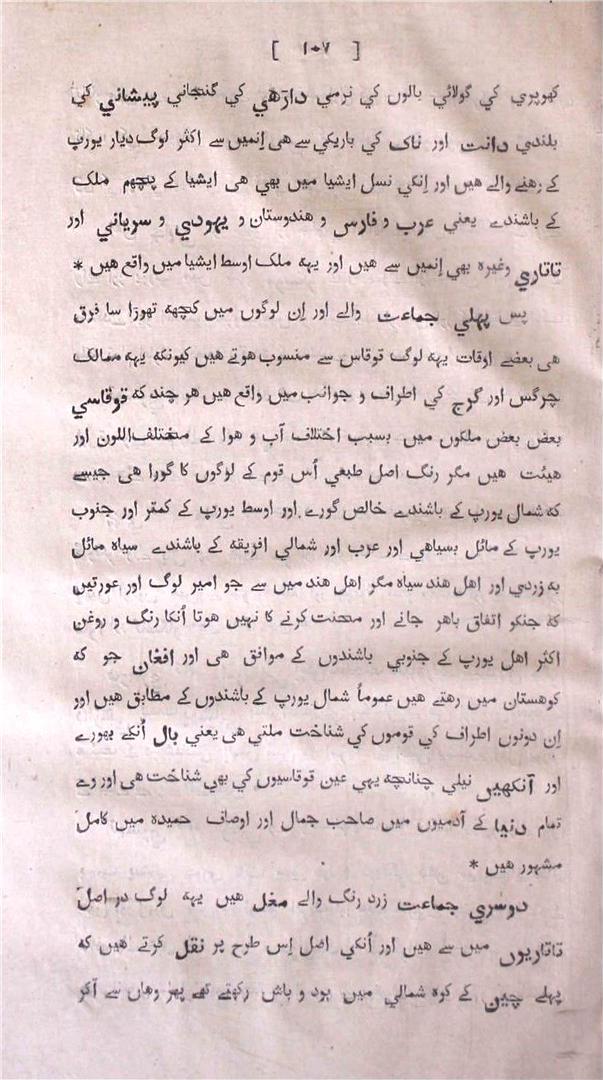 [ ١٠٧ ]
کھوپري کي گولائي بالوں کي نرمي داڑھي کي گنجاني پیشاني کي
بلندي دانت اور ناک کي باریکي سے هی اِنمیں سے اکثر لوگ دیار یورپ
کے رهنے والے هیں اور اِنکي نسل ایشیا میں بھي هی ایشیا کے پچھم ملک
کے باشندے یعني عرب و فارس و هندوستان و یہودي و سریاني اور
تاتاري وغیرہ بھي اِنمیں سے هیں اور یہہ ملک اوسط ایشیا میں واقع هیں *
پس پہلي جماعت والے اور اِن لوگوں میں کچھہ تھوڑا سا فرق
هی بعضے اوقات یہہ لوگ قوقاس سے منسوب هوتے هیں کیونکہ یہہ ممالک
چرگس اور گرج کي اطراف و جوانب میں واقع هیں هر چند کہ قوقاسي
بعض بعض ملکوں میں بسبب اختلاف آب و هوا کے مختلف‌اللون اور
هیئت هیں مگر رنگ اصل طبعي اُس قوم کے لوگوں کا گورا هی جیسے
کہ شمال یورپ کے باشندے خالص گورے اور اوسط یورپ کے کمتر اور جنوب
یورپ کے مائل بسیاهي اور عرب اور شمالي افریقہ کے باشندے سیاہ مائل
بہ زردي اور اهل هند سیاہ مگر اهل هند میں سے جو امیر لوگ اور عورتیں
کہ جنکو اتفاق باهر جانے اور محنت کرنے کا نہیں هوتا اُنکا رنگ و روغن
اکثر اهل یورپ کے جنوبي باشندوں کے موافق هی اور افغان جو کہ
کوهستان میں رهتے هیں عموماً شمال یورپ کے باشندوں کے مطابق هیں اور
اِن دونوں اطراف کي قوموں کي شناخت ملتي هی یعني بال اُنکے بھورے
اور آنکھیں نیلي چنانچہ یہي عین قوقاسیوں کي بھي شناخت هی اور وے
تمام دنیا کے آدمیوں میں صاحب جمال اور اوصاف حمیدہ میں کامل
مشہور هیں *
دوسري جماعت زرد رنگ والے مغل هیں یہہ لوگ در اصل
تاتاریوں میں سے هیں اور اُنکي اصل اِس طرح پر نقل کرتے هیں کہ
پہلے چین کے کوہ شمالي میں بود و باش رکھتے تھے پھر وهاں سے آکر